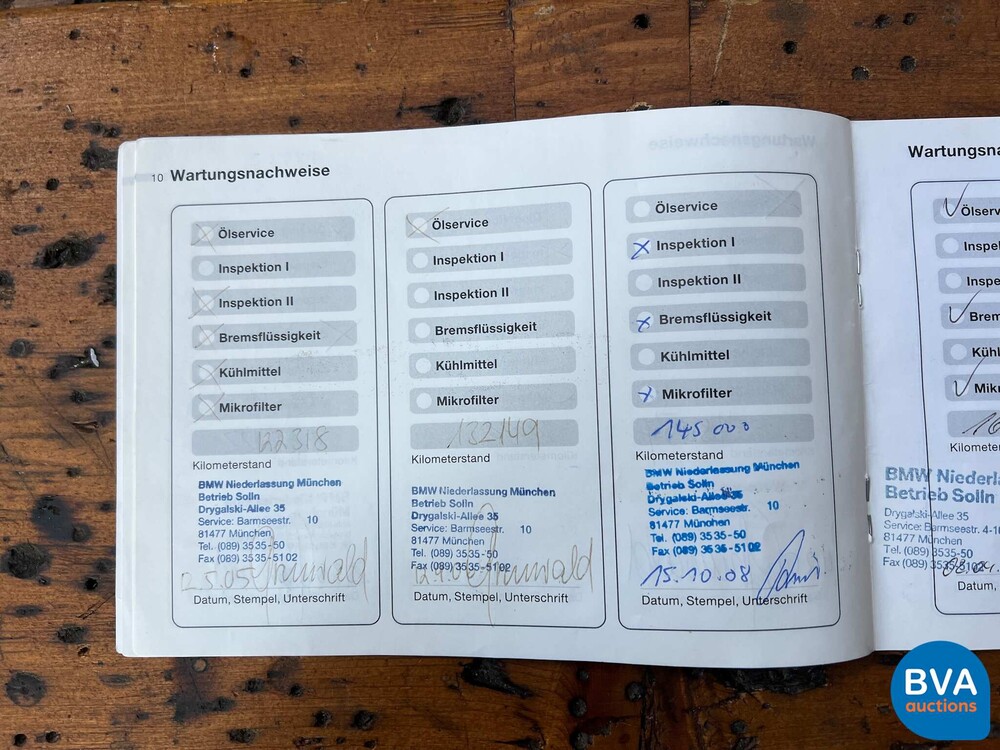 10 Wartungsnachweise
Ölservice
Inspektion I
Inspektion II
Bremsflüssigkeit
Kühlmittel
Mikrofilter
122318
Kilometerstand
BMW Niederlassung München
Betrieb Solln
Drygalski-Allee 35
Service: Barmseestr. 10
81477 München
Tel. (089) 3535-50
Fax (089) 3535-5102
2.5.05 Grunwald
Datum, Stempel, Unterschrift
Ölservice
Inspektion I
Inspektion II
Bremsflüssigkeit
Kühlmittel
Mikrofilter
132149
Kilometerstand
BMW Niederlassung München
Betrieb Solln
Drygalski-Allee 35
Service: Barmseestr. 10
81477 München
Tel. (089) 3535-50
Fax (089) 3535-5102
Grunwald
Datum, Stempel, Unterschrift
Ölservice
Inspektion I
Inspektion II
Bremsflüssigkeit
Kühlmittel
Mikrofilter
145 000
Kilometerstand
BMW Niederlassung München
Betrieb Solln
Drygalski-Allee 35
Service: Barmseestr. 10
81477 München
Tel. (089) 3535-50
Fax (089) 3535-5102
15.10.08
Datum, Stempel, Unterschrift
Wartungsna
Ölserv
Inspe
Inspe
Brem
Kühl
Mikr
16
Kilometer
BMW Niederlassung
Betrieb Solln
Drygalski-Allee 35
Service: Barmseestr. 4-1
81477 München
Tel. (089) 3535-50
Fax (089) 3535-5102
Datum,
BVA
auctions